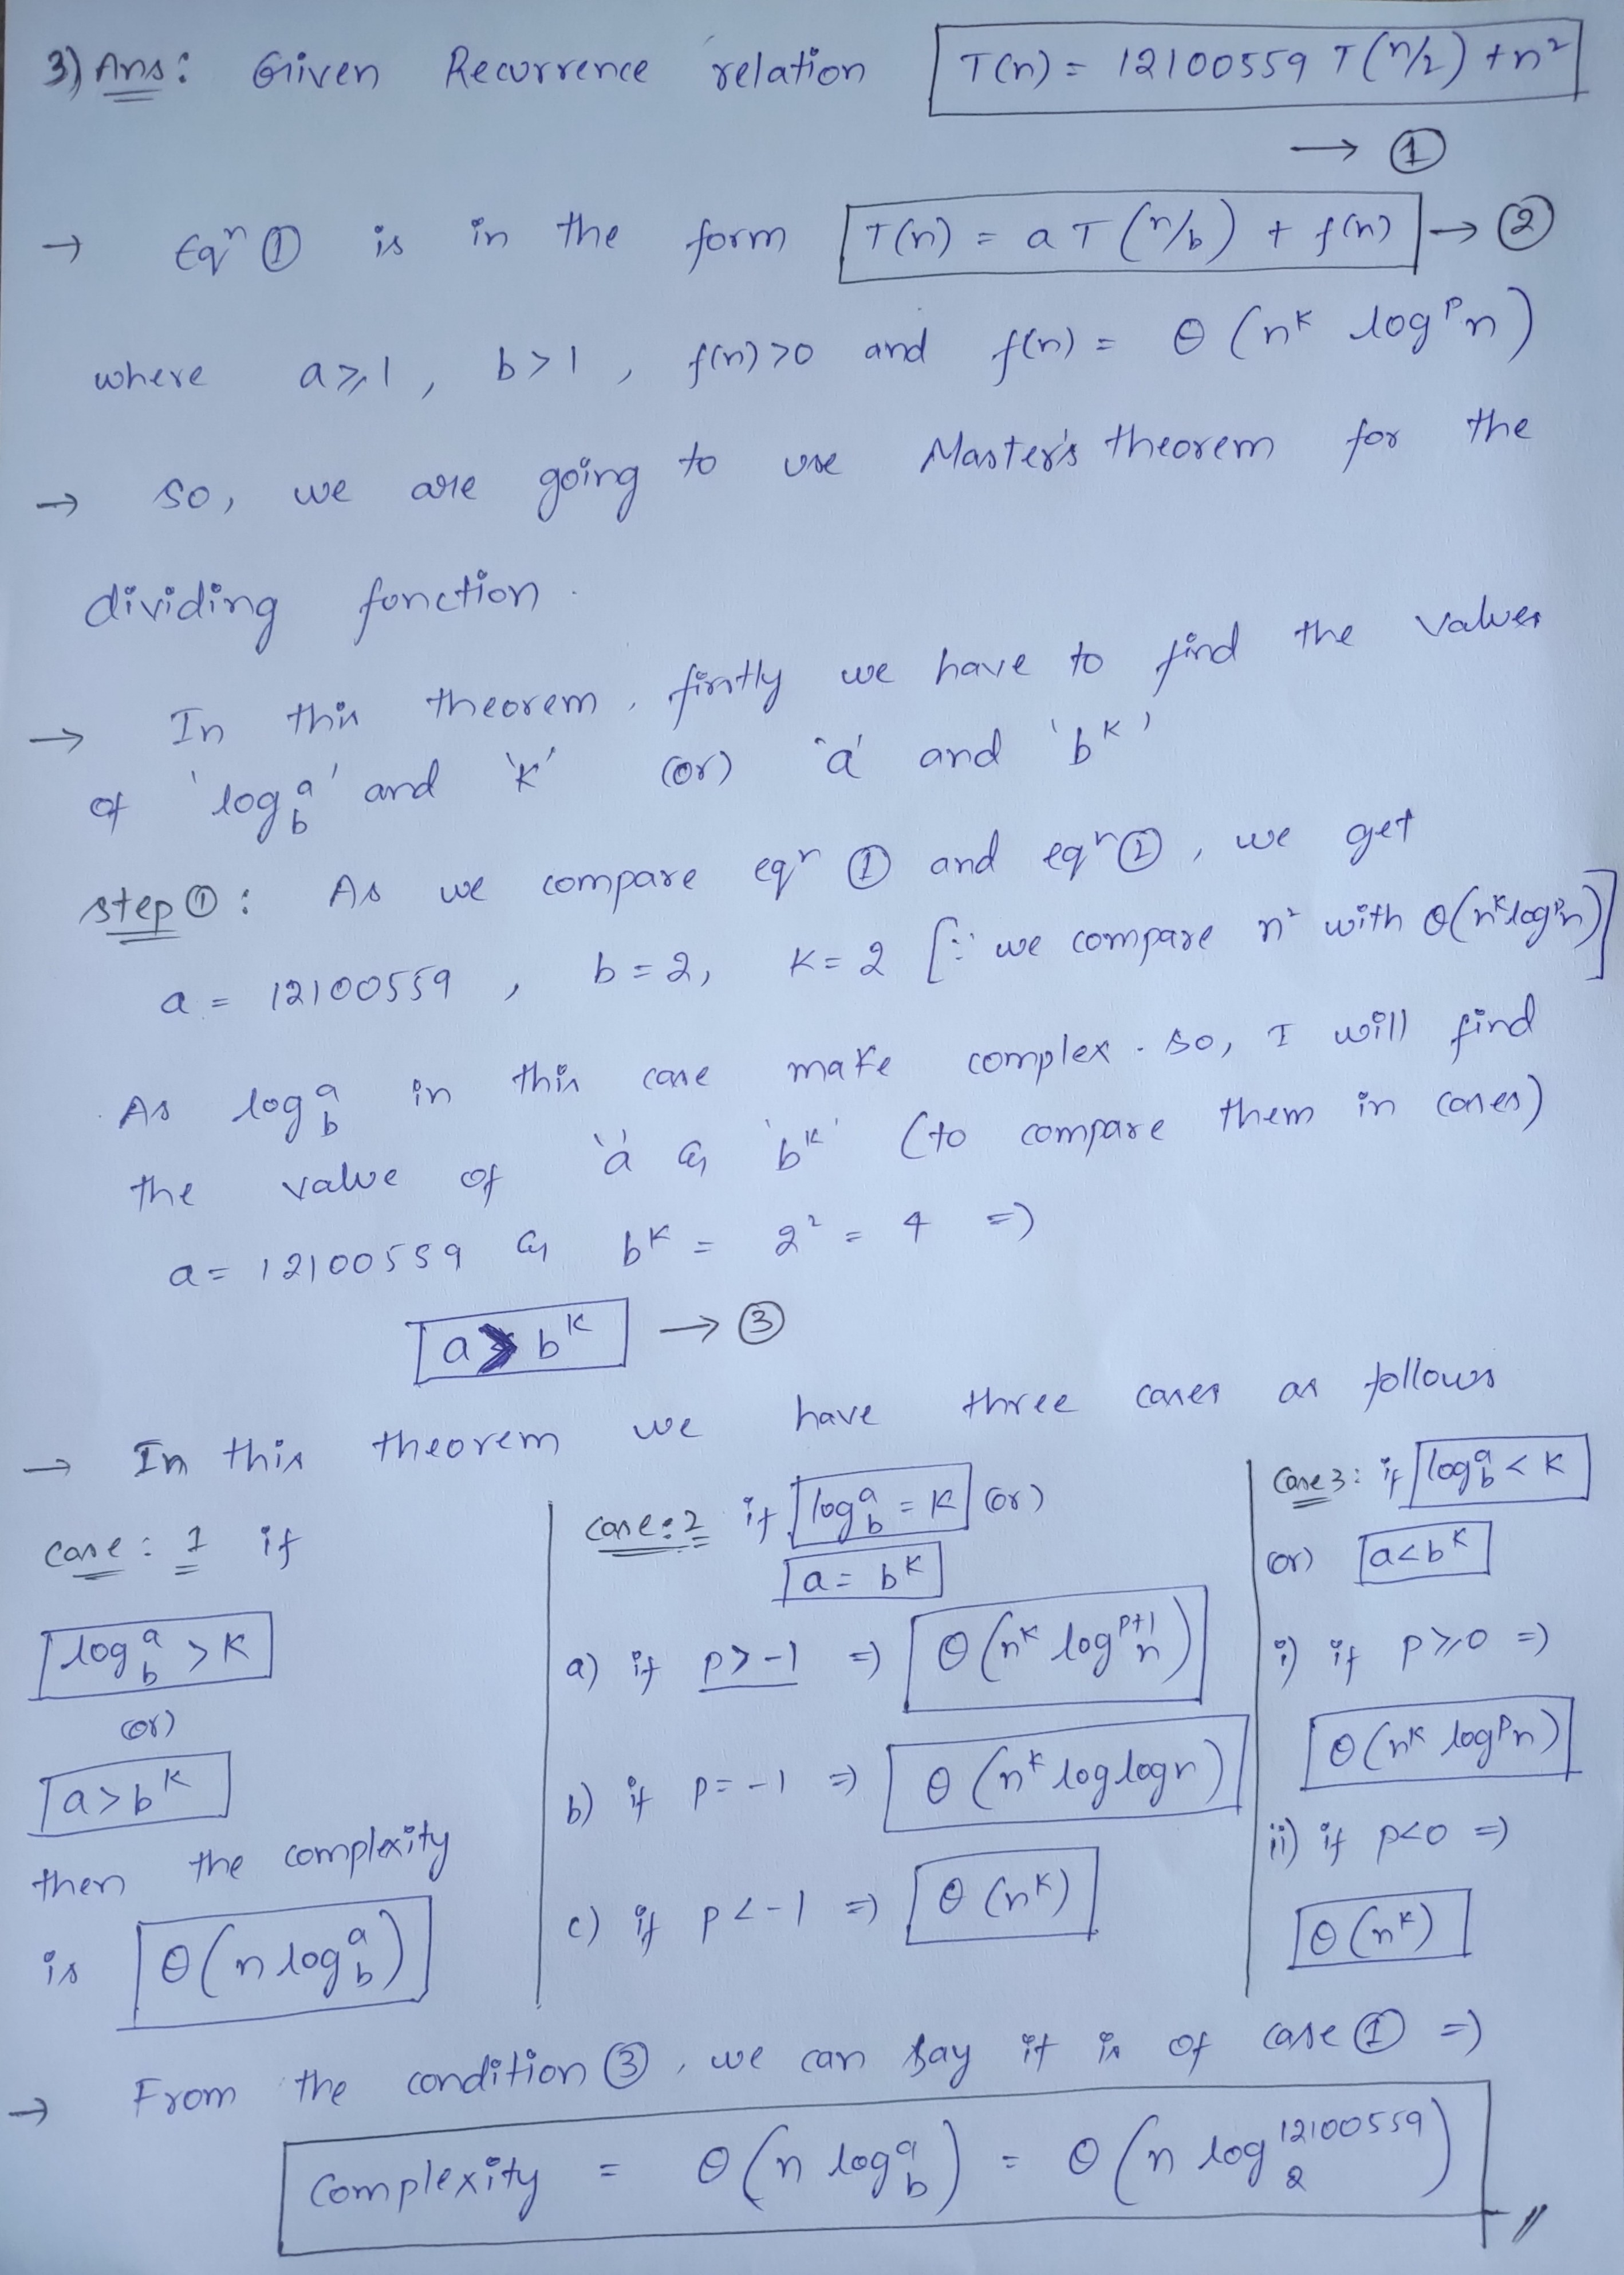 3) Ans: Given Recurrence relation T(n) = 12100559 T(n/2) + n²
→ ①
→ Eqⁿ ① is in the form T(n) = a T(n/b) + f(n) → ②
where a ≥ 1, b > 1, f(n) > 0 and f(n) = θ (n^k log^p n)
→ so, we are going to use Master's theorem for the
dividing function.
→ In this theorem, firstly we have to find the values
of 'log_b^a' and 'k' (or) 'a' and 'b^k'
step ①: As we compare eqⁿ ① and eqⁿ ②, we get
a = 12100559, b = 2, k = 2 [∵ we compare n² with θ(n^k log^p n)]
As log_b^a in this case make complex. so, I will find
the value of 'a' & 'b^k' (to compare them in cases)
a = 12100559 & b^k = 2² = 4 =>
a > b^k → ③
→ In this theorem we have three cases as follows
case: 1 if
log_b^a > k
(or)
a > b^k
then the complexity
is θ(n log_b^a)
case: 2 if log_b^a = k (or)
a = b^k
a) if p > -1 => θ (n^k log^(p+1) n)
b) if p = -1 => θ (n^k log log n)
c) if p < -1 => θ (n^k)
Case 3: if log_b^a < k
(or) a < b^k
i) if p ≥ 0 =>
θ (n^k log^p n)
ii) if p < 0 =>
θ (n^k)
→ From the condition ③, we can say it is of case ① =>
Complexity = θ (n log_b^a) = θ (n log_2^12100559)